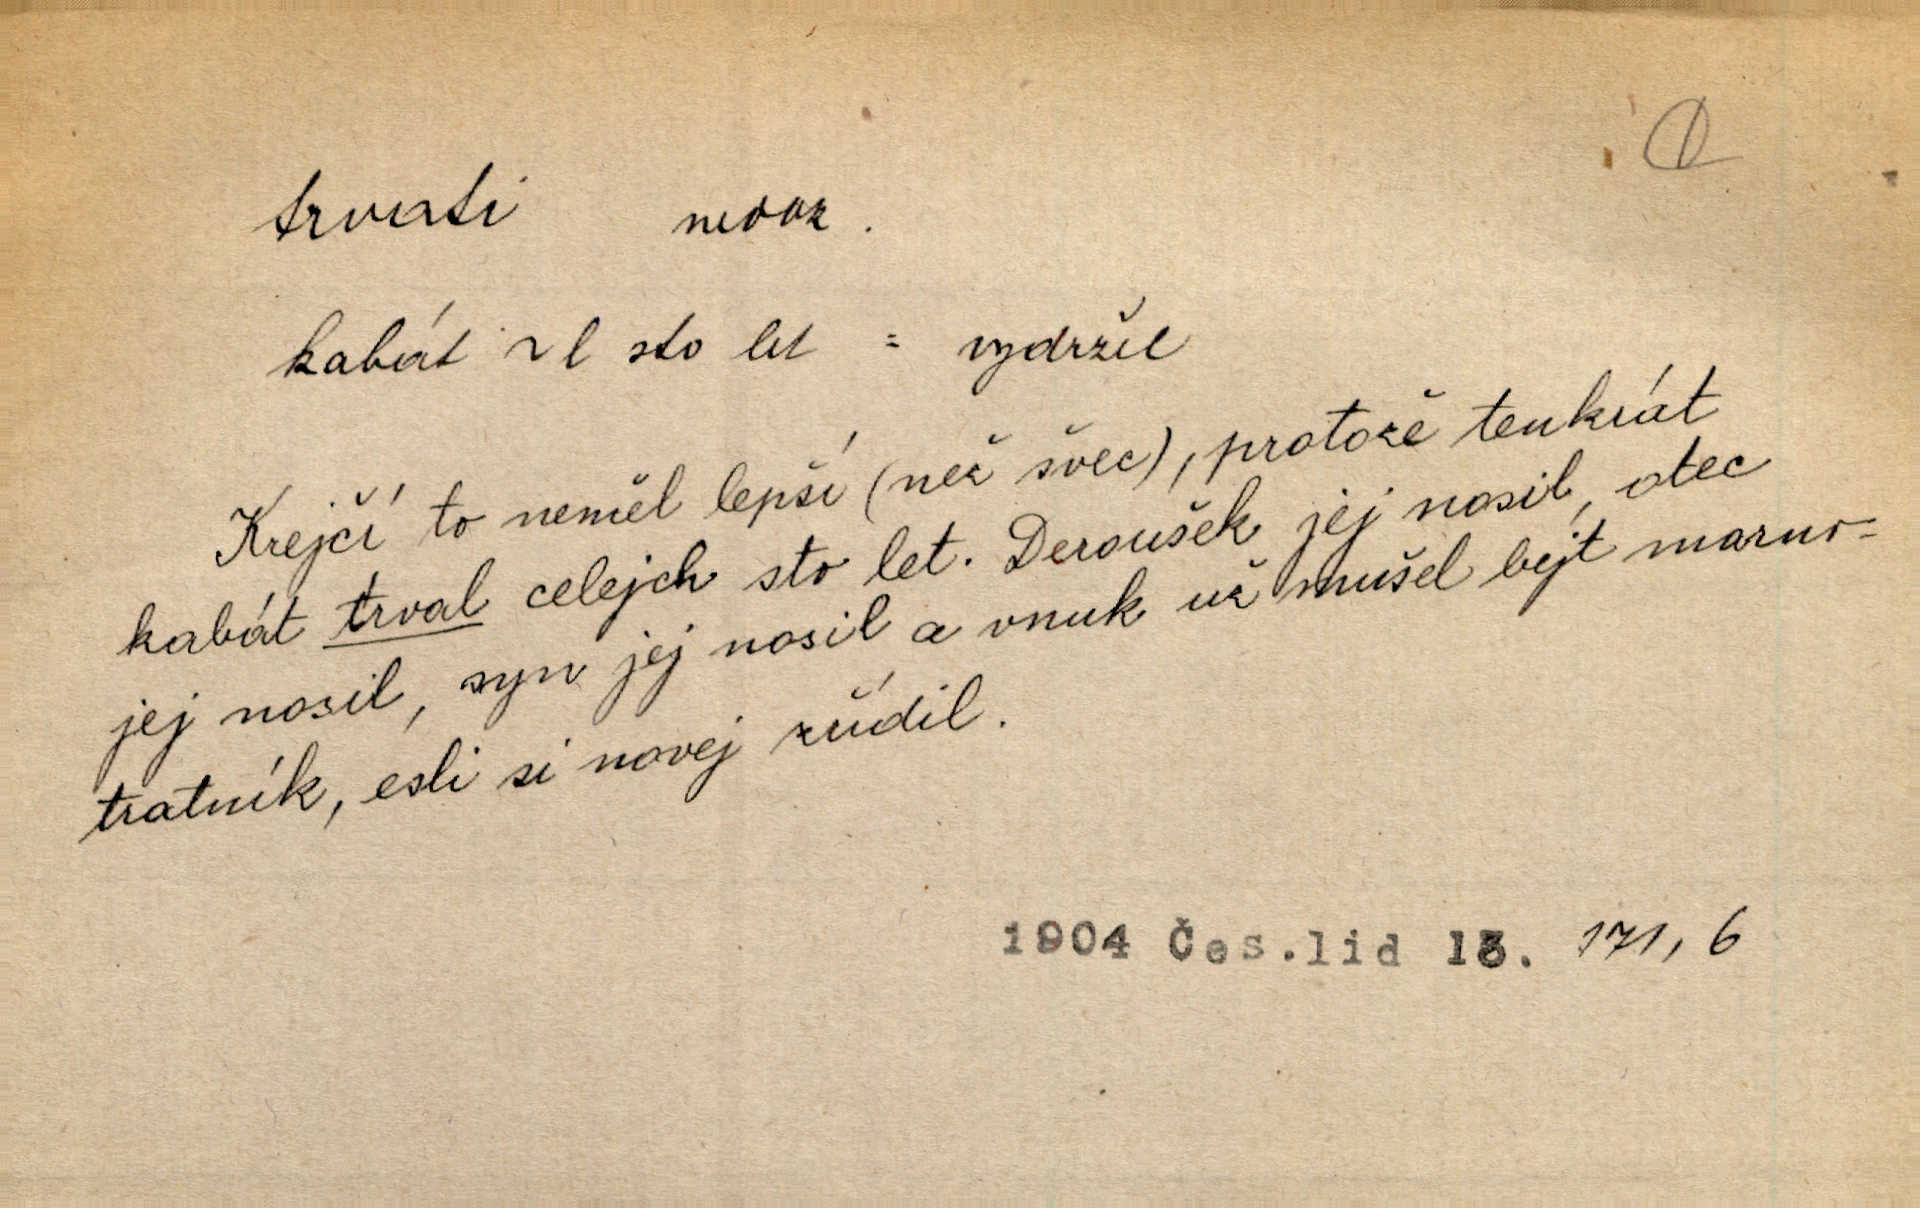 trvati nedok.
kabát ~l sto let = vydržel
Krejčí to neměl lepší (než švec), protože tenkrát
kabát trval celejch sto let. Deroušek jej nosil, otec
jej nosil, syn jej nosil a vnuk už mušel bejt marno-
tratník, esli si novej zřídil.
1904 Čes.lid 13. 171, 6